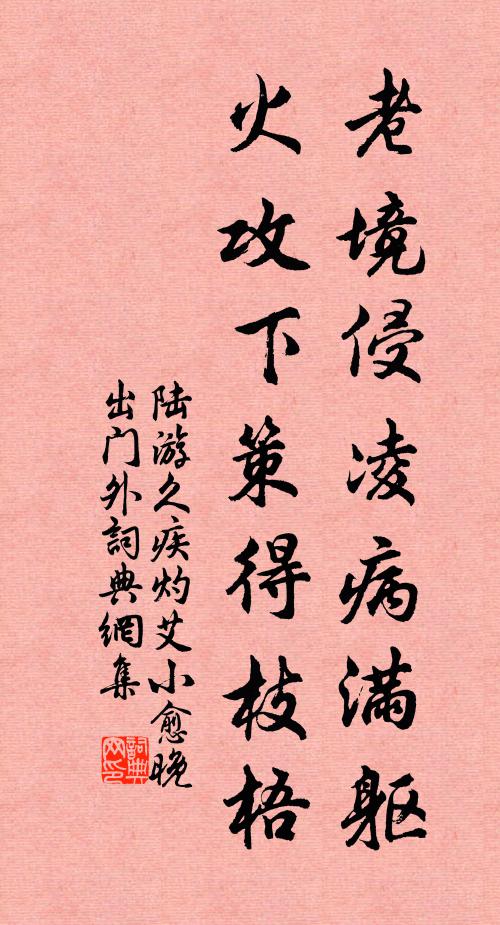 老境侵凌病满躯
火攻下策得枝梧
陆游久疾灼艾小愈晚
出门外詞典網集
詞典
网印